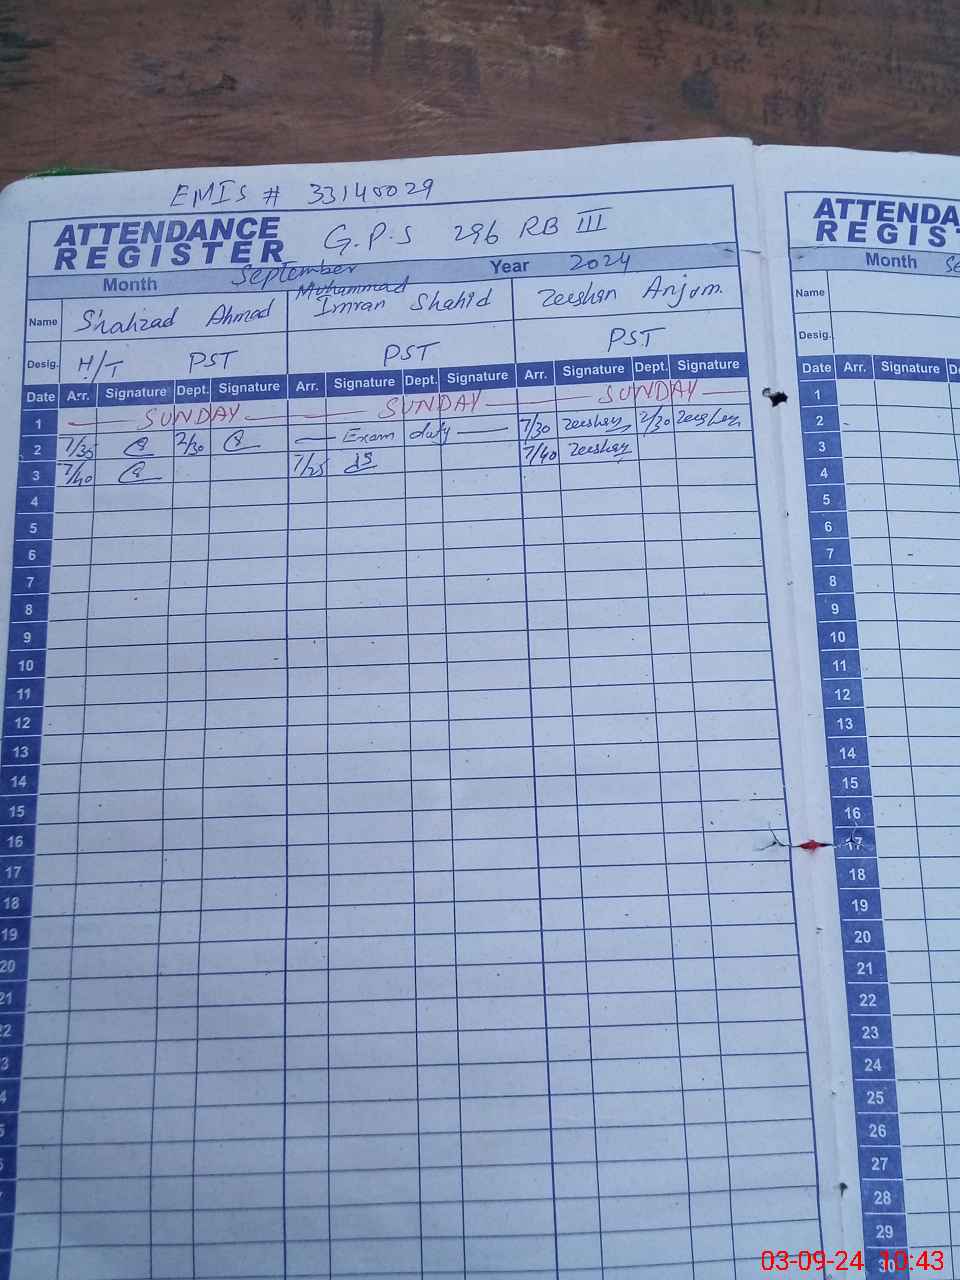 EMIS # 33140029
ATTENDANCE REGISTER G.P.S 296 RB III
Month September Year 2024
Name Shahzad Ahmad Muhammad Imran Shahid Zeeshan Anjum.
Desig. H/T PST PST PST
Date Arr. Signature Dept. Signature Arr. Signature Dept. Signature Arr. Signature Dept. Signature
1 SUNDAY SUNDAY SUNDAY
2 7/35 2/30 Exam duty 7/30 Zeeshan 2/30 Zeeshan
3 7/40 7/25 7/40 Zeeshan
4
5
6
7
8
9
10
11
12
13
14
15
16
17
18
19
20
21
22
3
4
5
ATTENDA
REGIS
Month Se
Name
Desig.
Date Arr. Signature De
1
2
3
4
5
6
7
8
9
10
11
12
13
14
15
16
17
18
19
20
21
22
23
24
25
26
27
28
29
30
03-09-24 10:43